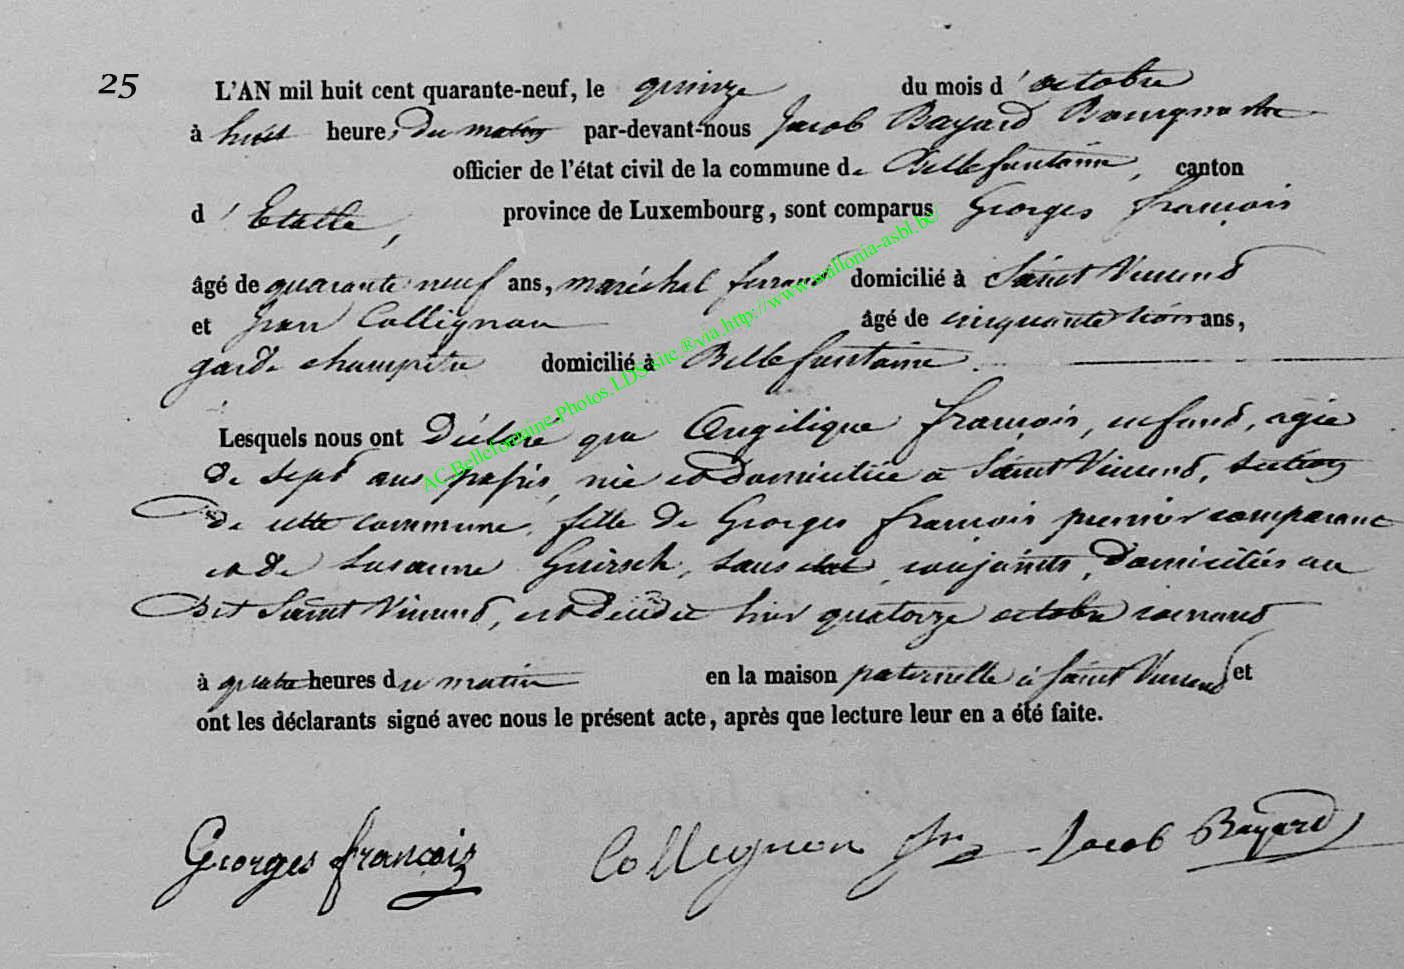 25
L'AN mil huit cent quarante-neuf, le quinze du mois d'octobre
à huit heures du matin par-devant-nous Jacob Bayard Bourgmestre
officier de l'état civil de la commune de Bellefontaine, canton
d'Etalle, province de Luxembourg, sont comparus Georges françois
âgé de quarante neuf ans, maréchal ferrant domicilié à Saint Vincend
et Jean Collignon âgé de cinquante trois ans,
garde champetre domicilié à Bellefontaine.
Lesquels nous ont Déclaré que Angélique françois, enfand, agée
de sept ans passés, née et domiciliée à Saint Vincend, section
de cette commune, fille de Georges françois premier comparant
et de Susanne Guirsch, sans état, conjoints, domiciliés au
dit Saint Vincend, est décédée hier quatorze octobre courand
à quatre heures du matin en la maison paternelle à Saint Vincend et
ont les déclarants signé avec nous le présent acte, après que lecture leur en a été faite.
Georges françois Collignon Jn Jacob Bayard
AC.Bellefontaine.Photos.LDS.site.®via.http://www.wallonia-asbl.be